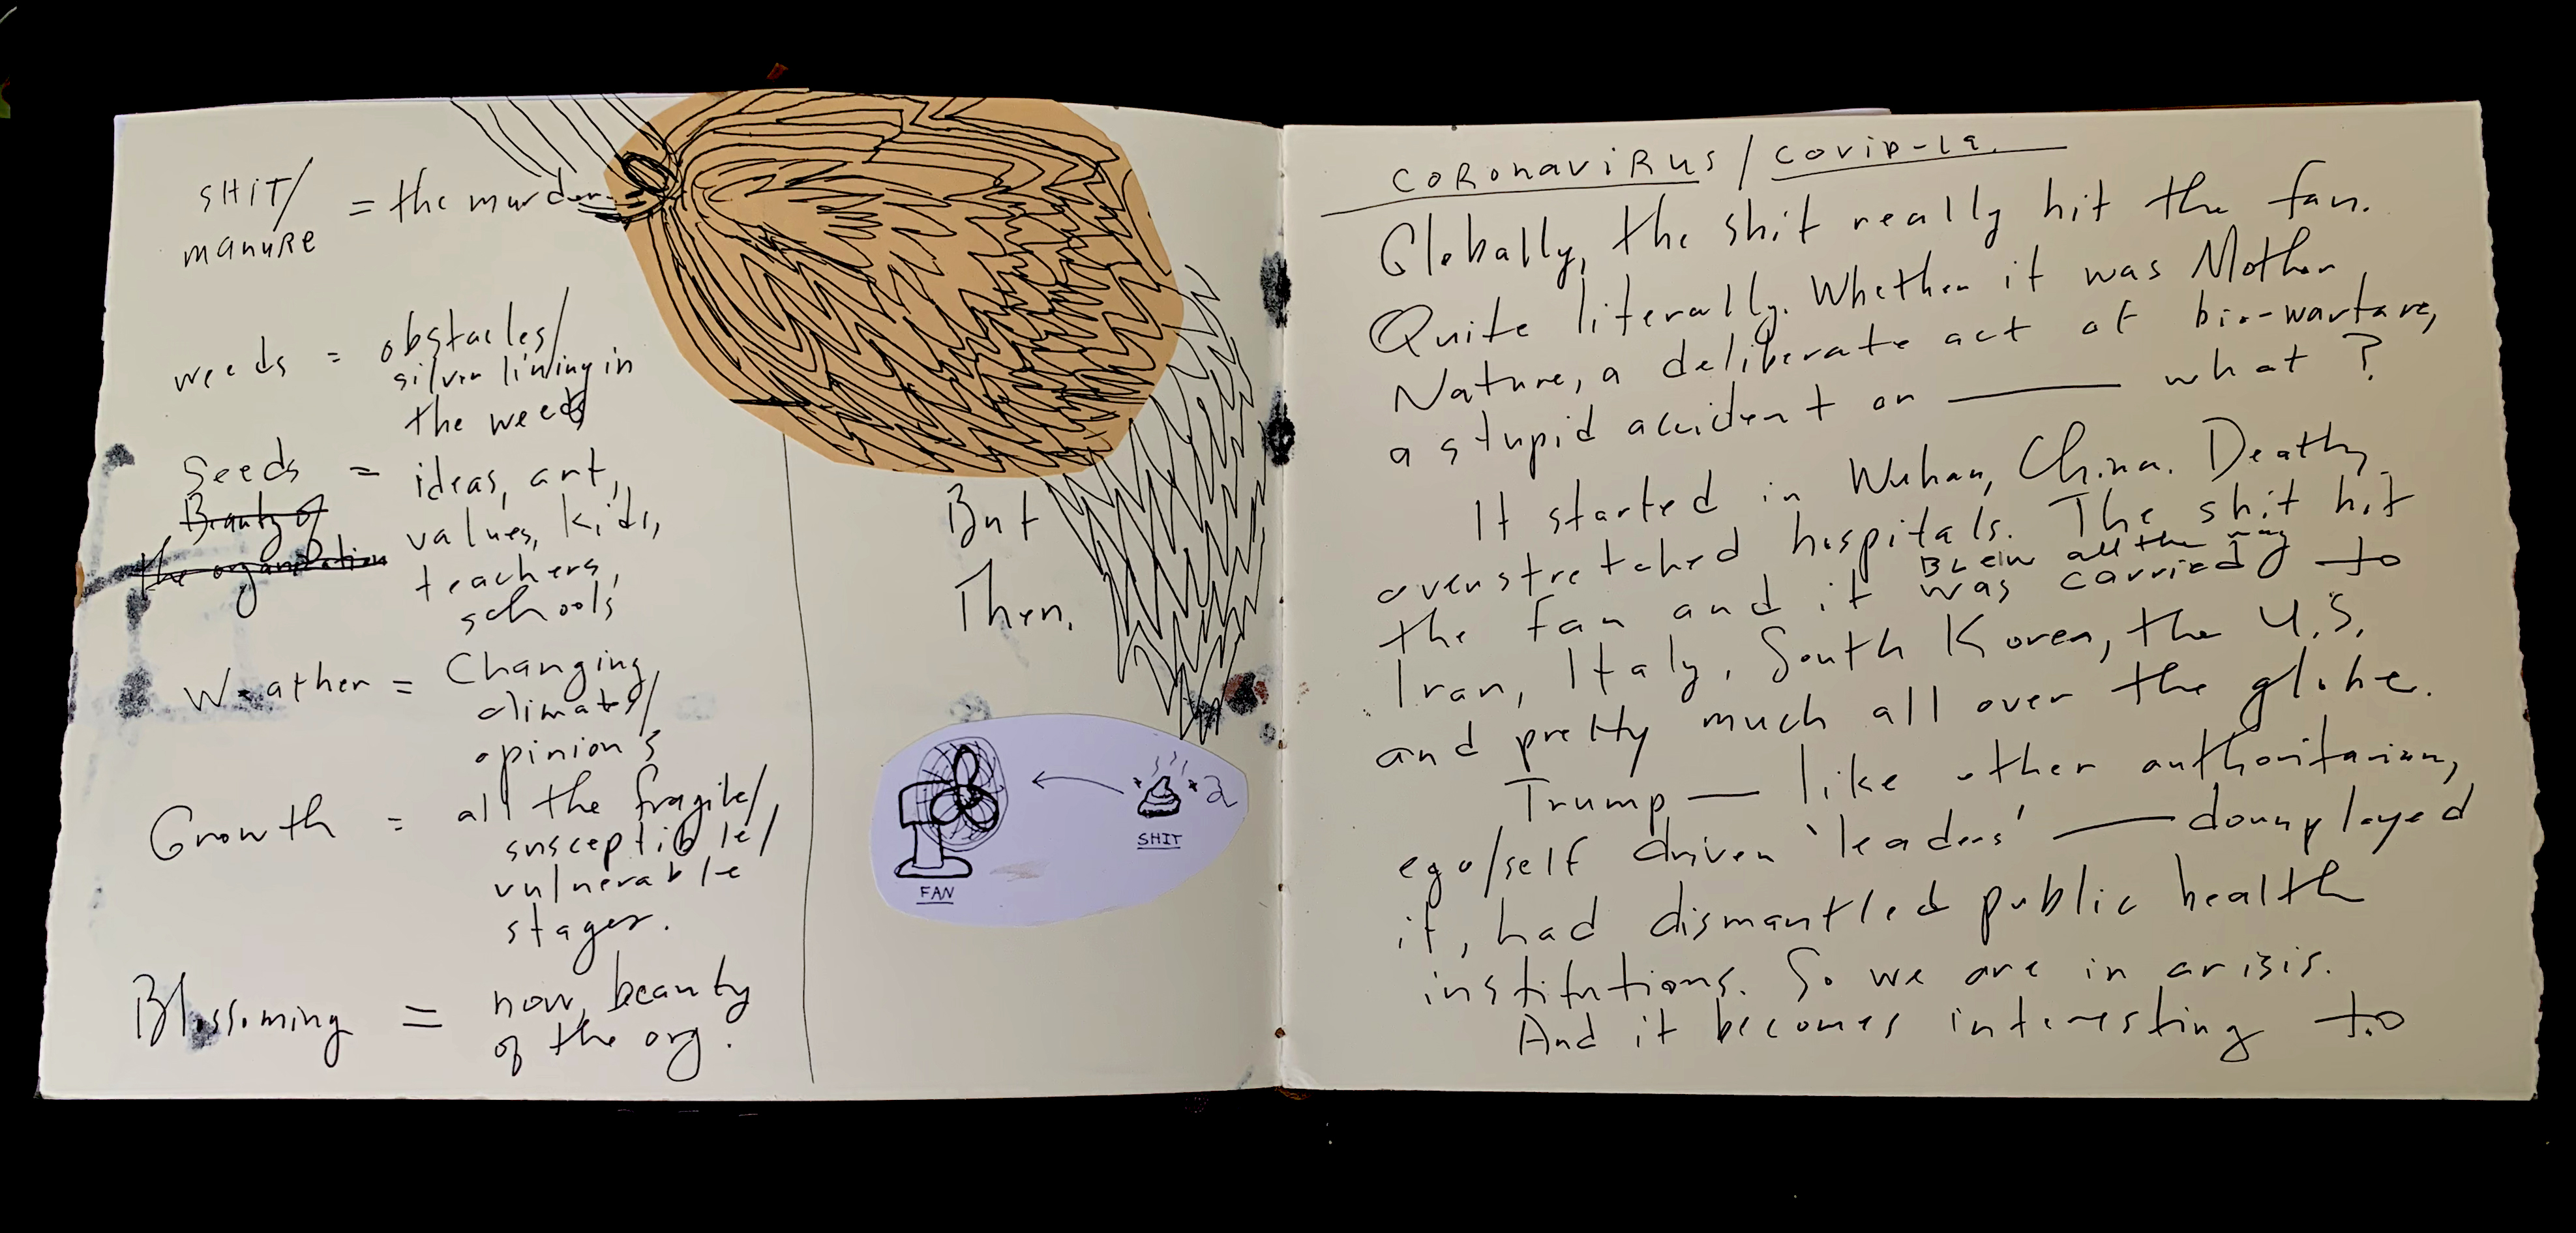 SHIT/
manure = the murder
weeds = obstacles/
silver lining in
the weeds
Seeds = ideas, art,
Beauty of
the organization
values, kids,
teachers,
schools
Weather = Changing
climates/
opinions
Growth = all the fragile/
susceptible/
vulnerable
stages.
Blossoming = now, beauty
of the org.
But
Then.
FAN
SHIT
CORONAVIRUS / COVID-19.
Globally, the shit really hit the fan.
Quite literally. Whether it was Mother
Nature, a deliberate act of bio-warfare,
a stupid accident or — what?
It started in Wuhan, China. Deaths,
overstretched hospitals. The shit hit
BLEW all the way
the fan and it was carried to
Iran, Italy, South Korea, the U.S.
and pretty much all over the globe.
Trump — like other authoritarian,
ego/self driven 'leaders' — downplayed
it, had dismantled public health
institutions. So we are in crisis.
And it becomes interesting to